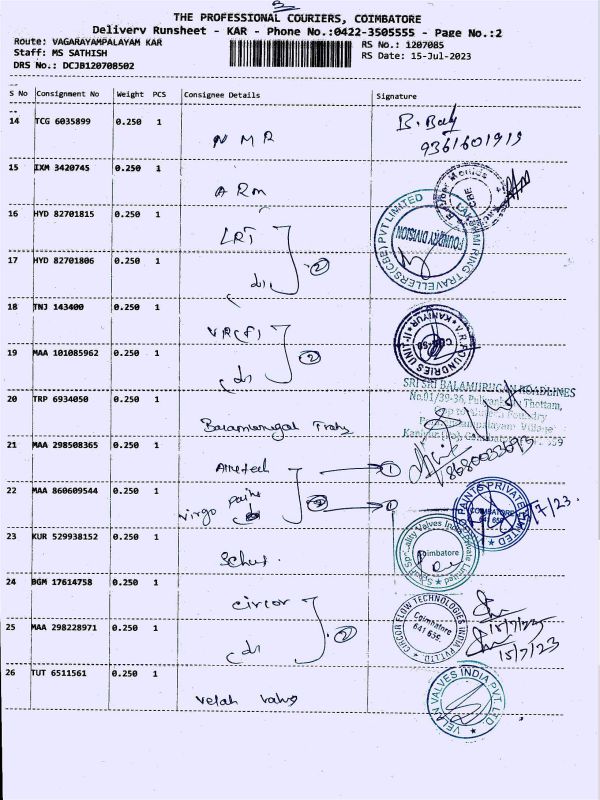 THE PROFESSIONAL COURIERS, COIMBATORE
Delivery Runsheet - KAR - Phone No.:0422-3505555 - Page No.:2
Route: VAGARAYAMPALAYAM KAR
RS No.: 1207085
Staff: MS SATHISH
RS Date: 15-Jul-2023
DRS No.: DCJB120708502
S No Consignment No Weight PCS Consignee Details Signature
14 TCG 6035899 0.250 1
NMR
9361601919
15 IXM 3420745 0.250 1
ARM
16 HYD 82701815 0.250 1
LRT
LAKSHMI RING TRAVELLERS(CBE) PVT LIMITED
FOUNDRY DIVISION
17 HYD 82701806 0.250 1
do
2
18 TNJ 143400 0.250 1
V.R. FOUNDRIES UNIT-II
KANIYUR
19 MAA 101085962 0.250 1
do
2
20 TRP 6934050 0.250 1
SRI SRI BALAMURUGAN ROADLINES
No.01/39-36,
Thottam,
21 MAA 298508365 0.250 1
1
8680033693
22 MAA 860609544 0.250 1
Virgo
PAINTS PRIVATE LIMITED
COIMBATORE
641 659
/7/23.
23 KUR 529938152 0.250 1
Valves India Private Limited
Coimbatore
24 BGM 17614758 0.250 1
circor
CIRCOR FLOW TECHNOLOGIES INDIA PVT LTD
Coimbatore
641 659.
15/7/23
25 MAA 298228971 0.250 1
do
2
15/7/23
26 TUT 6511561 0.250 1
Velan valve
VELAN VALVES INDIA PVT. LTD.